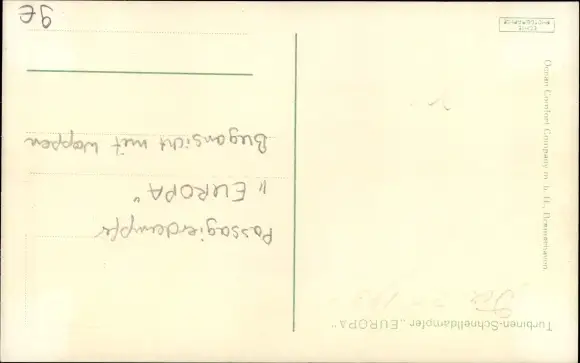 Turbinen-Schnelldampfer „EUROPA"
Passagierdampfer
"EUROPA"
Bugansicht mit Wappen
Ocean Comfort Company m. b. H., Bremerhaven.
ECHTE
PHOTOGRAPHIE